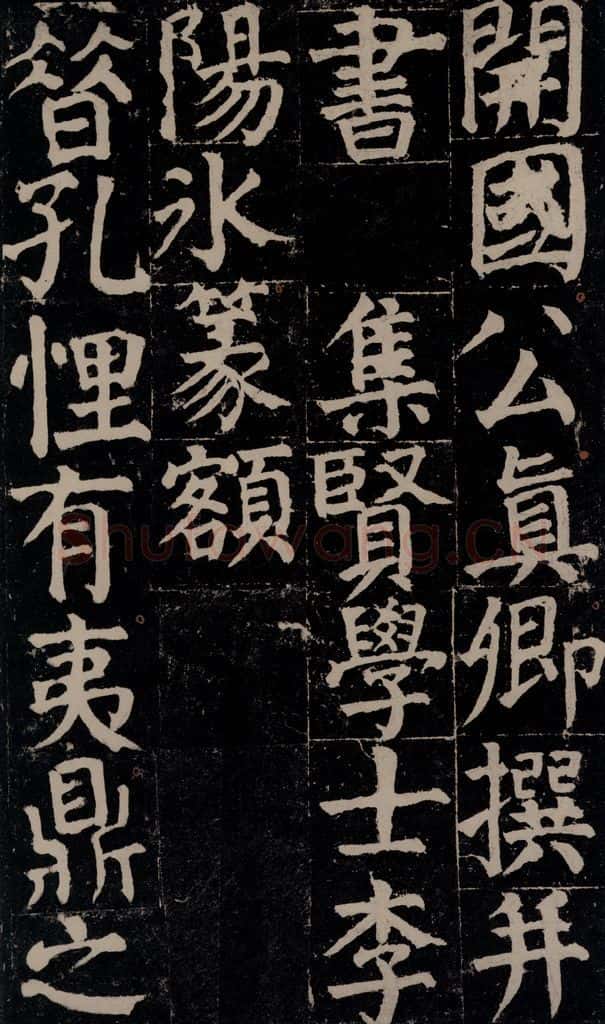 開國公真卿撰并
書 集賢學士李
陽氷篆額
昝孔悝有夷鼎之
Shufawang.cn